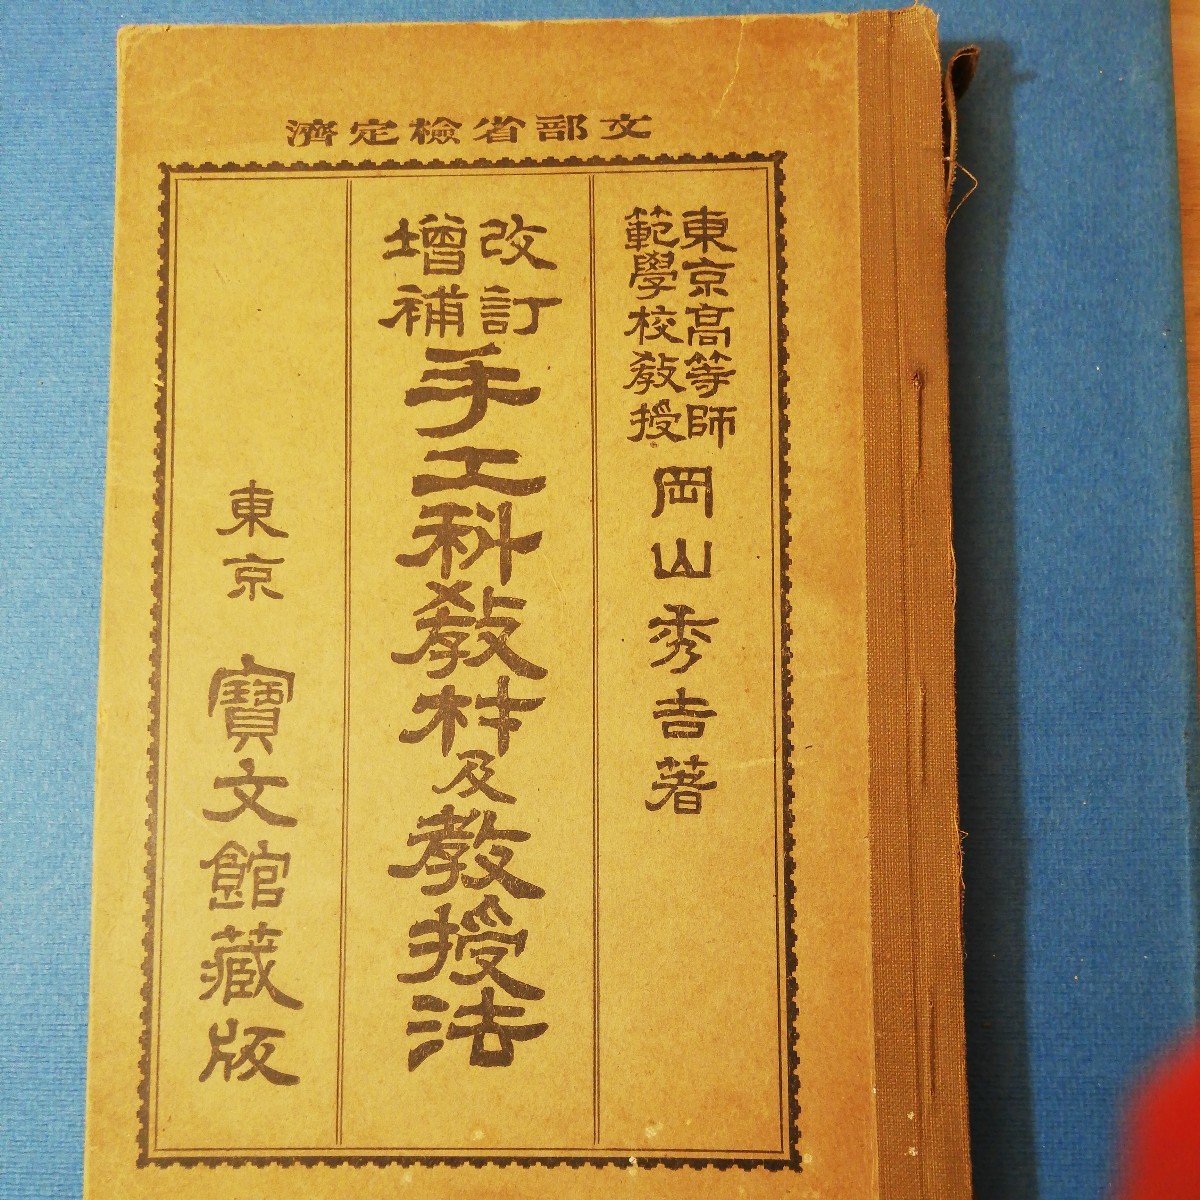 文部省檢定濟
東京高等師
範學校教授
岡山秀吉著
改訂
增補
手工科教材及教授法
東京
寶文館藏版